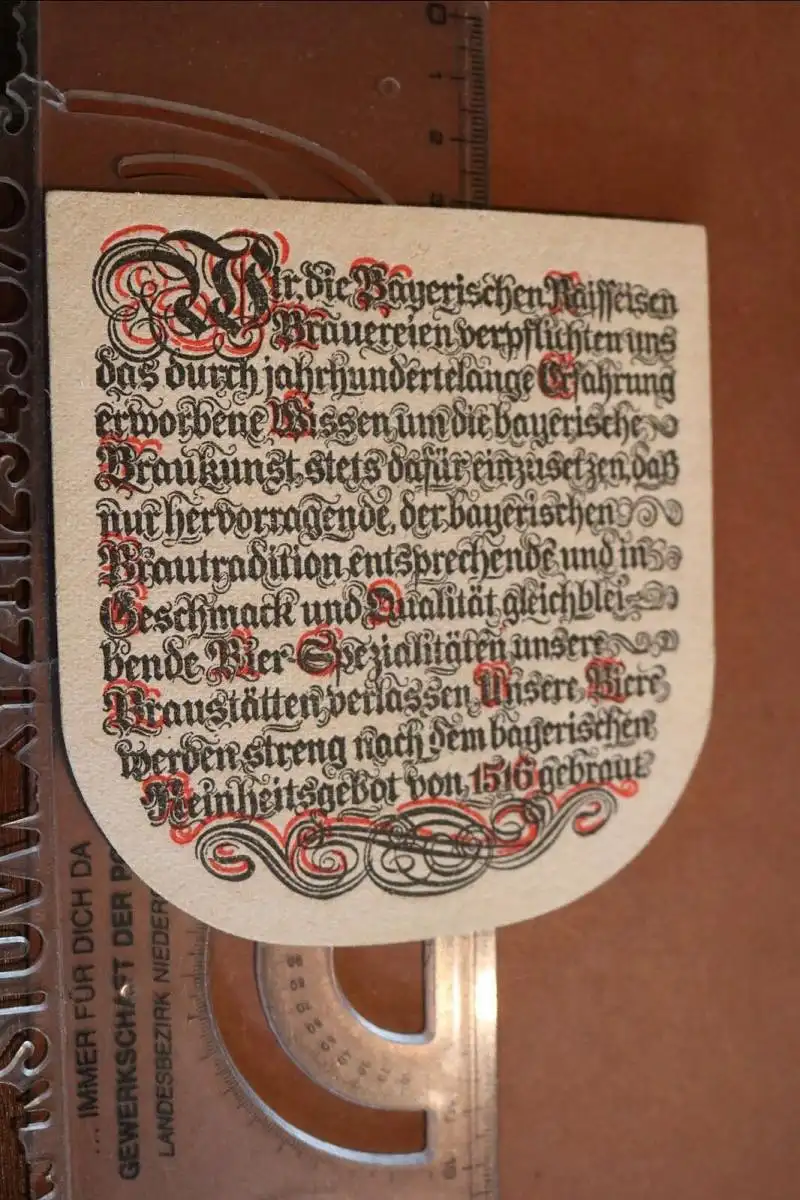 Wir, die Bayerischen Raiffeisen
Brauereien verpflichten uns
das durch jahrhundertelange Erfahrung
erworbene Wissen um die bayerische
Braukunst stets dafür einzusetzen, daß
nur hervorragende, der bayerischen
Brautradition entsprechende und in
Geschmack und Qualität gleichblei-
bende Bier-Spezialitäten unsere
Braustätten verlassen. Unsere Biere
werden streng nach dem bayerischen
Reinheitsgebot von 1516 gebraut
... IMMER FÜR DICH DA
GEWERKSCHAFT DER PO
LANDESBEZIRK NIEDER